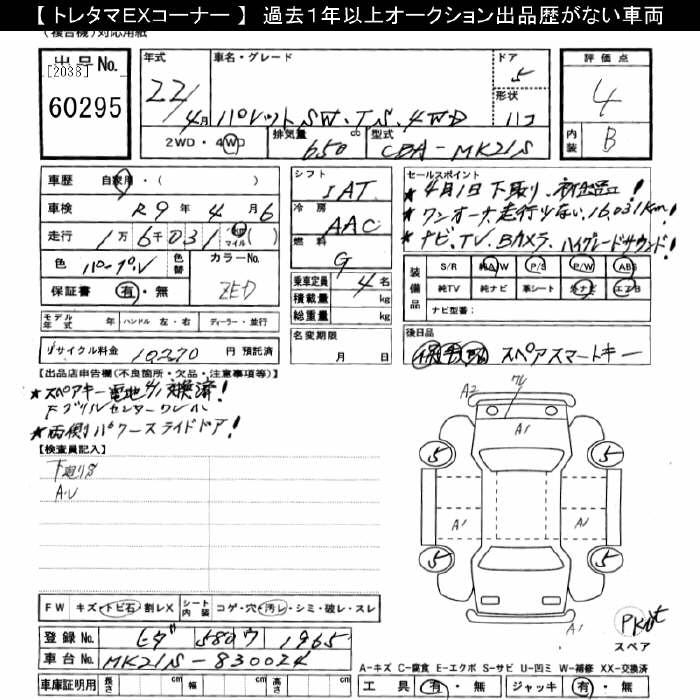 【トレタマEXコーナー】 過去1年以上オークション出品歴がない車両
(複合機)対応用紙
出品No.
[2038]
60295
年式
22/4月
車名・グレード
パレットSW・TS・4WD
ドア
5
形状
ハコ
2WD・4WD
排気量 650 cc
型式 CBA-MK21S
評価点
4
内装
B
車歴 自家用・( )
車検 R9年 4月6
走行 1万6千031 マイル( )
色 パープル
色替
カラーNo.
ZED
保証書 有・無
モデル年式 年 ハンドル 左・右 ディーラー・並行
リサイクル料金 10270 円 預託済
シフト
IAT
冷房
AAC
燃料
G
乗車定員 4 名
積載量 kg
総重量 kg
名変期限
月 日
セールスポイント
★4月1日下取り、
★ワンオーナ、走行少ない16,031Km!
★ナビ、TV、Bカメラ、ハイグレードサウンド!
装備品
S/R 純A/W P/S P/W ABS
純TV 純ナビ 革シート 社ナビ エアB
ナビ型番:
後日品
スペアスマートキー
【出品店申告欄(不良箇所・欠品・注意事項等)】
★スペアキー電池4/1交換済!
★両側パワースライドドア!
【検査員記入】
下廻りS
A・U
A2
A1
5
5
A1
A1
5
5
A1
Pkit
スペア
FW キズ・トビ石・割レX
シート内装 コゲ・穴・汚レ・シミ・破レ・スレ
登録No. 580 ワ 1965
車台No. MK21S-830024
車庫証明用 長さ cm 幅 cm 高さ cm
A-キズ C-腐食 E-エクボ S-サビ U-凹ミ W-補修 XX-交換済
工具 有・無 ジャッキ 有・無